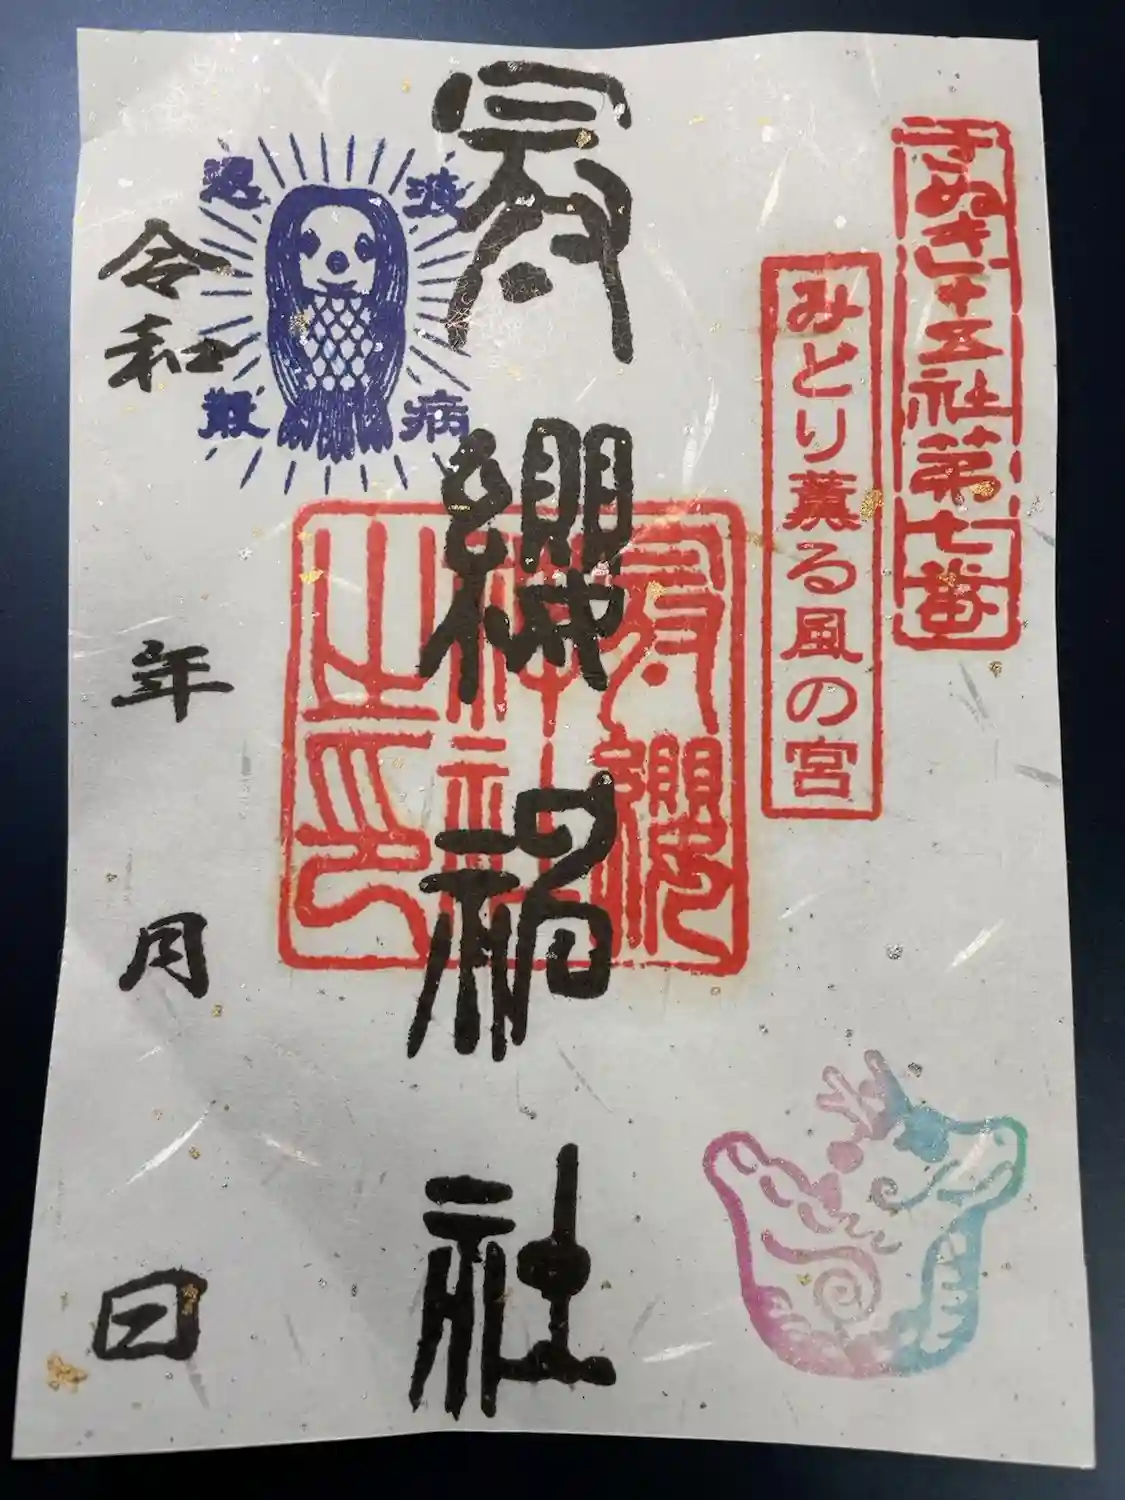 さぬき十五社第七番
みとり薫る風の宮
冠纓神社
冠纓神社之印
疫病退散
令和
年
月
日